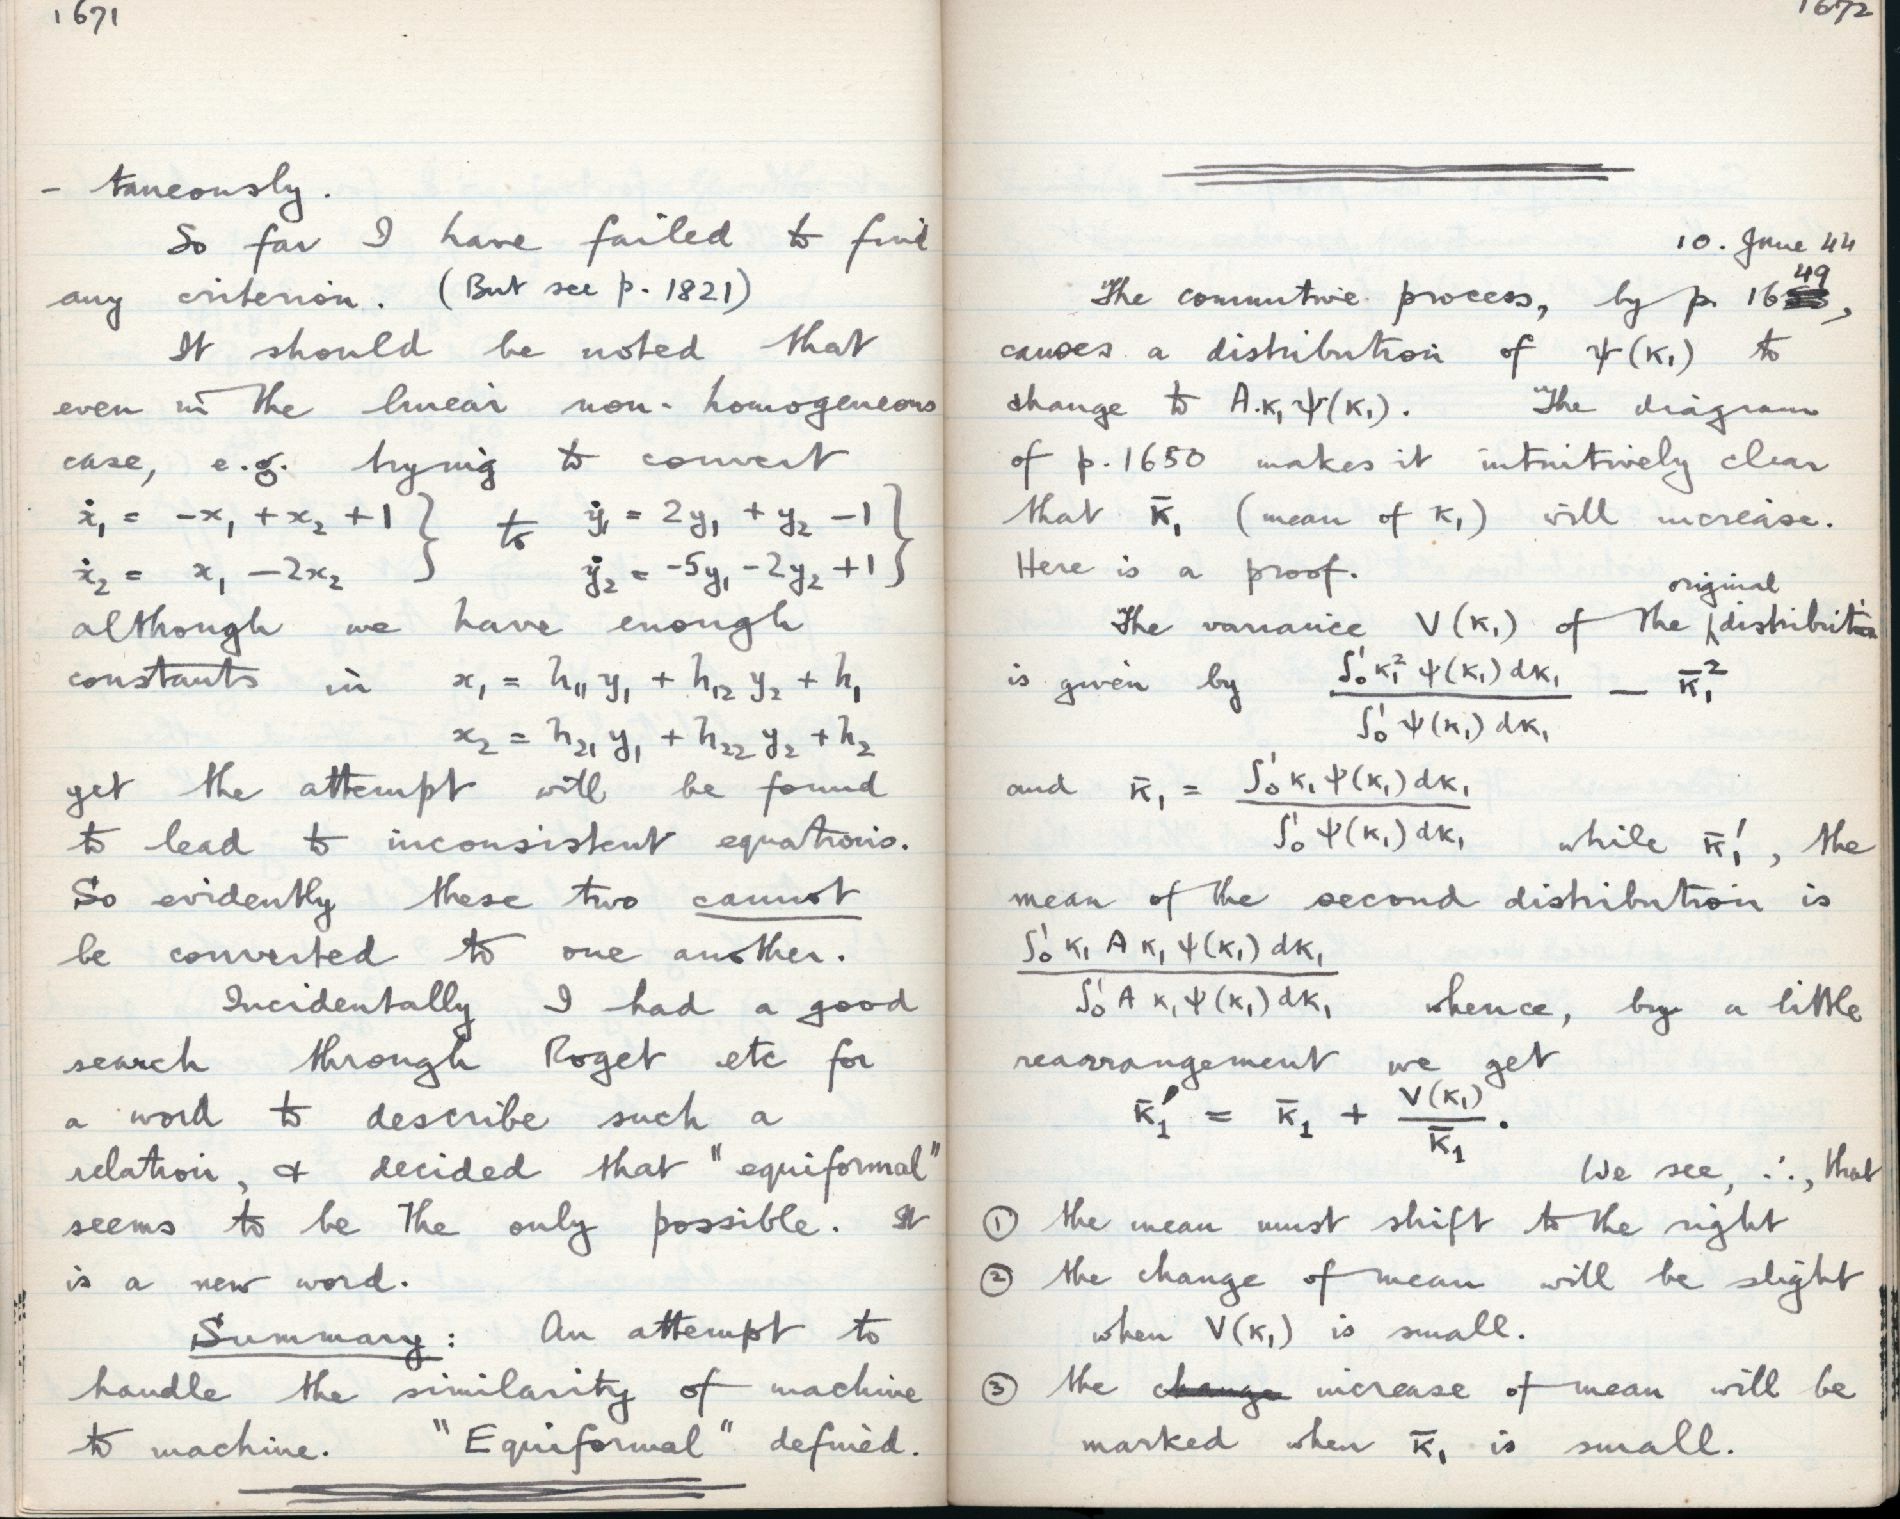 1671
- taneously.
So far I have failed to find
any criterion. (But see p. 1821)
It should be noted that
even in the linear non-homogeneous
case, e.g. trying to convert
ẋ₁ = -x₁ + x₂ + 1 } to ẏ₁ = 2y₁ + y₂ - 1 }
ẋ₂ = x₁ - 2x₂ } ẏ₂ = -5y₁ - 2y₂ + 1 }
although we have enough
constants in x₁ = h₁₁ y₁ + h₁₂ y₂ + h₁
x₂ = h₂₁ y₁ + h₂₂ y₂ + h₂
yet the attempt will be found
to lead to inconsistent equations.
So evidently these two cannot
be converted to one another.
Incidentally I had a good
search through Roget etc for
a word to describe such a
relation, & decided that "equiformal"
seems to be the only possible. It
is a new word.
Summary: An attempt to
handle the similarity of machine
to machine. "Equiformal" defined.
1672
10. June 44
The commutive process, by p. 1649,
causes a distribution of ψ(κ₁) to
change to A.κ₁ψ(κ₁). The diagram
of p. 1650 makes it intuitively clear
that κ̄₁ (mean of κ₁) will increase.
Here is a proof.
The variance V(κ₁) of the original distribution
is given by ∫₀¹ κ₁² ψ(κ₁) dκ₁ / ∫₀¹ ψ(κ₁) dκ₁ - κ̄₁²
and κ̄₁ = ∫₀¹ κ₁ ψ(κ₁) dκ₁ / ∫₀¹ ψ(κ₁) dκ₁ while κ̄₁', the
mean of the second distribution is
∫₀¹ κ₁ A κ₁ ψ(κ₁) dκ₁ / ∫₀¹ A κ₁ ψ(κ₁) dκ₁ whence, by a little
rearrangement we get
κ̄₁' = κ̄₁ + V(κ₁) / κ̄₁ .
We see, ∴, that
① the mean must shift to the right
② the change of mean will be slight
when V(κ₁) is small.
③ the change increase of mean will be
marked when κ̄₁ is small.